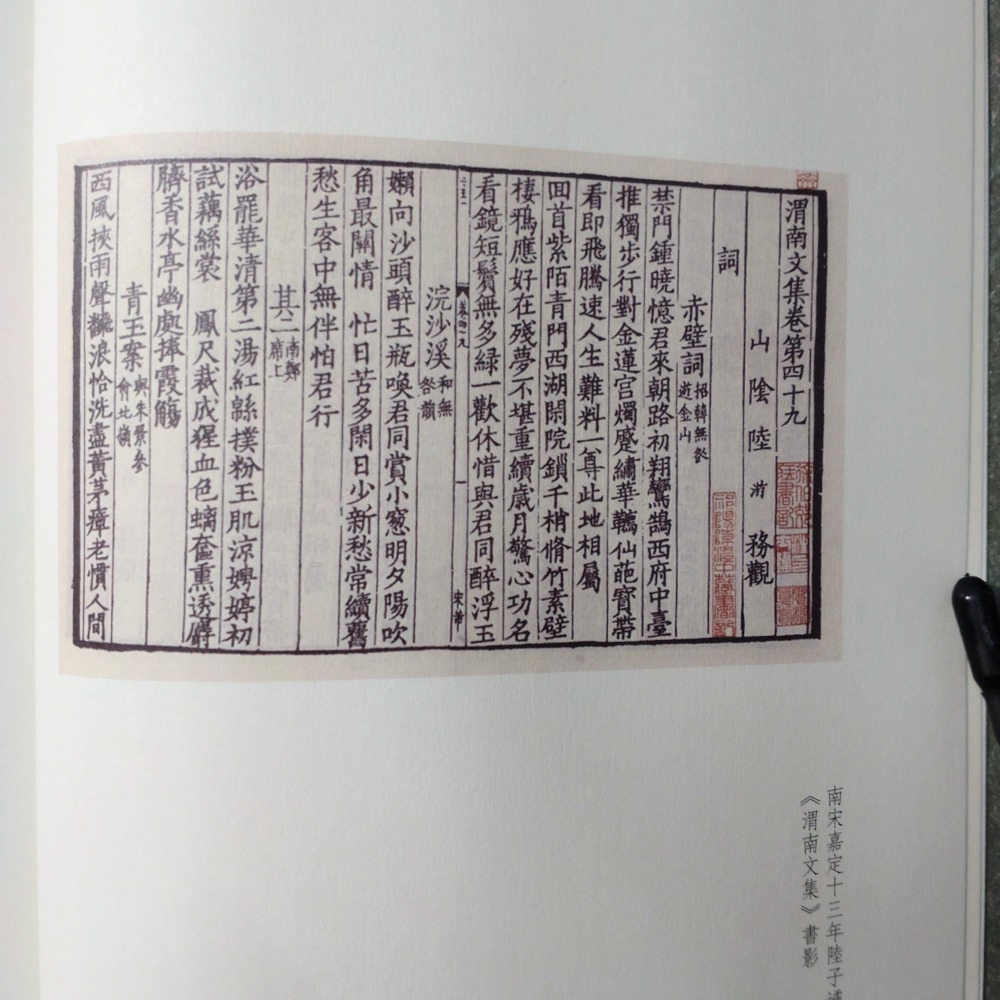 渭南文集卷第四十九
山陰陸游務觀
詞
赤壁詞 招韓無咎遊金山
禁門鍾曉憶君來朝路初翔鸞鵠西府中臺
推獨步行對金蓮宮燭蹙繡華韉仙葩寶帶
看即飛騰速人生難料一尊此地相屬
回首紫陌青門西湖閑院鎖千梢脩竹素壁
棲鴉應好在殘夢不堪重續歲月驚心功名
看鏡短鬢無多綠一歡休惜與君同醉浮玉
卷四十九
一
浣沙溪 和無咎韻
嬾向沙頭醉玉瓶喚君同賞小窻明夕陽吹
角最關情 忙日苦多閑日少新愁常續舊
愁生客中無伴怕君行
其二 南鄭席上
浴罷華清第二湯紅綿撲粉玉肌涼娉婷初
試藕絲裳 鳳尺裁成猩血色螭奩熏透麝
臍香水亭幽處捧霞觴
青玉案 與朱景參會北嶺
西風挾雨聲翻浪恰洗盡黃茅瘴老慣人間
南宋嘉定十三年陸子遹
《渭南文集》書影